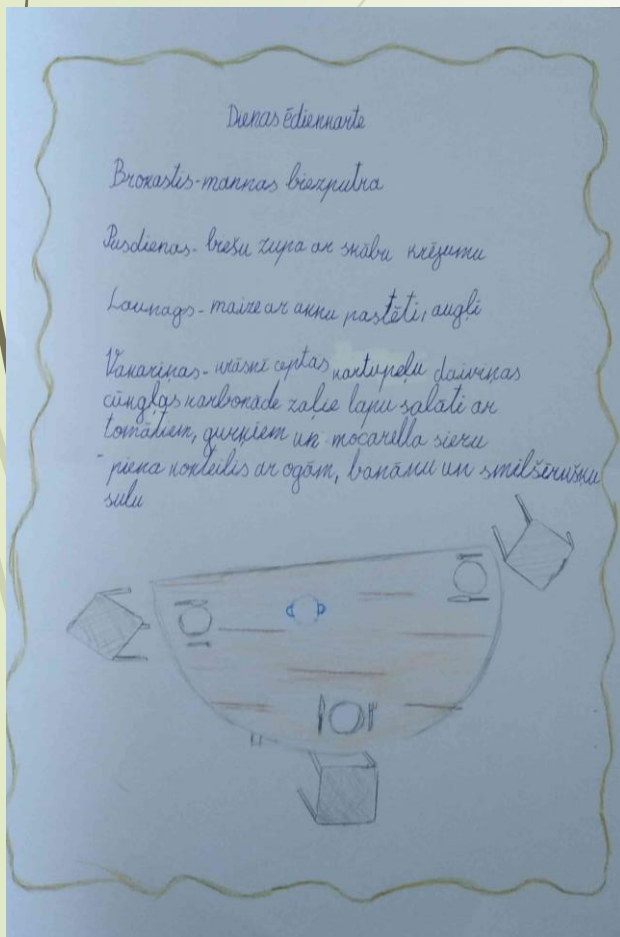 Dienas ēdienkarte
Brokastis-mannas biezputra
Pusdienas- biešu zupa ar skābu krējumu
Launags-maize ar aknu pastēti, augļi
Vakariņas-krāsnī ceptas kartupeļu daiviņas
cūngļas karbonāde zaļie lapu salāti ar
tomātiem, gurķiem un mocarilla sieru
-piena kokteilis ar ogām, banānu un smilšērkšķu
sulu